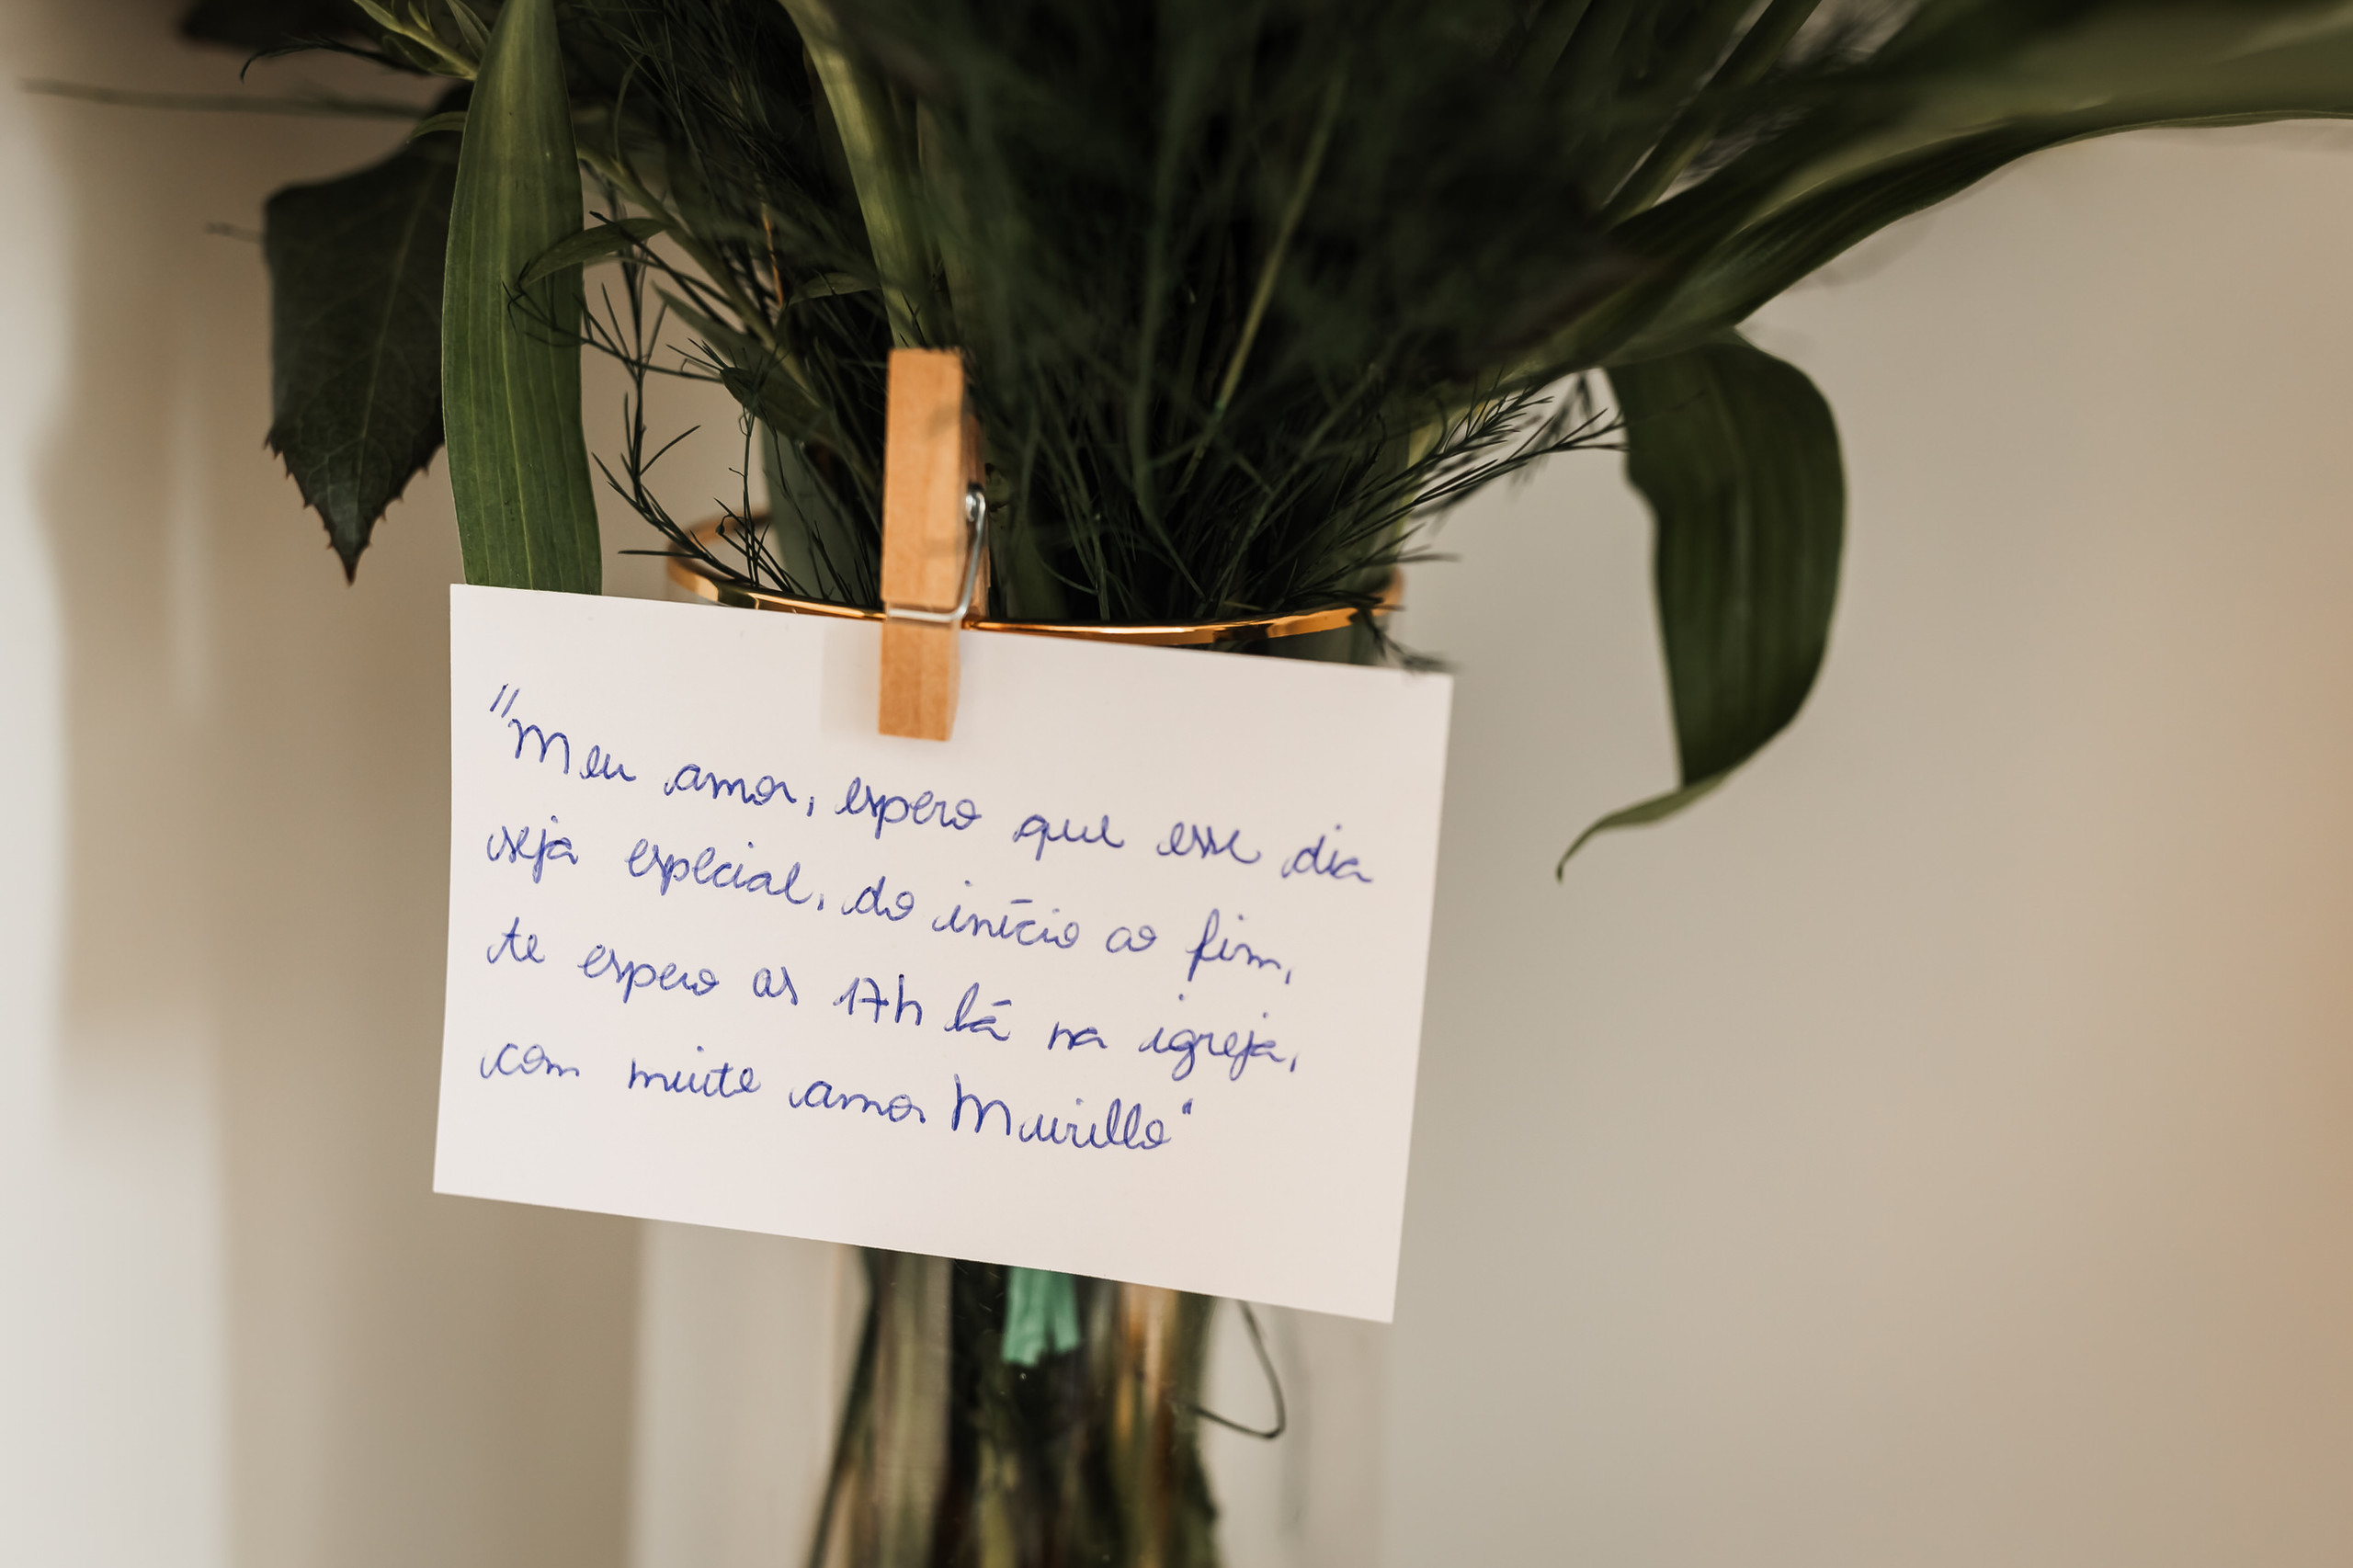 "Meu amor, espero que esse dia
seja especial, do início ao fim,
te espero as 17h lá na igreja,
com muito amor Murillo"